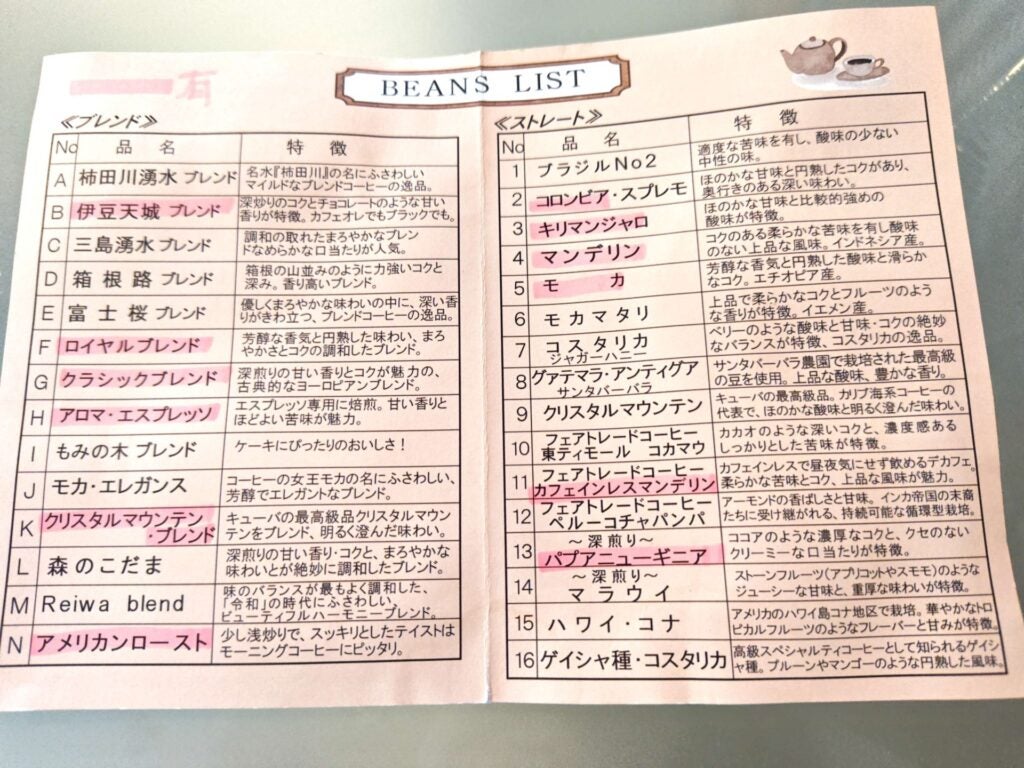 有
BEANS LIST
≪ブレンド≫
No 品名 特徴
A 柿田川湧水 ブレンド 名水『柿田川』の名にふさわしい
マイルドなブレンドコーヒーの逸品。
B 伊豆天城 ブレンド 深炒りのコクとチョコレートのような甘い
香りが特徴。カフェオレでもブラックでも。
C 三島湧水 ブレンド 調和の取れたまろやかなブレン
ドなめらかな口当たりが人気。
D 箱根路 ブレンド 箱根の山並みのように力強いコクと
深み。香り高いブレンド。
E 富士桜 ブレンド 優しくまろやかな味わいの中に、深い香
りがきわ立つ、ブレンドコーヒーの逸品。
F ロイヤルブレンド 芳醇な香気と円熟した味わい、まろ
やかさとコクの調和したブレンド。
G クラシックブレンド 深煎りの甘い香りとコクが魅力の、
古典的なヨーロピアンブレンド。
H アロマ・エスプレッソ エスプレッソ専用に焙煎。甘い香りと
ほどよい苦味が魅力。
I もみの木 ブレンド ケーキにぴったりのおいしさ！
J モカ・エレガンス コーヒーの女王モカの名にふさわしい、
芳醇でエレガントなブレンド。
K クリスタルマウンテン
・ブレンド
キューバの最高級品クリスタルマウン
テンをブレンド、明るく澄んだ味わい。
L 森のこだま 深煎りの甘い香り・コクと、まろやかな
味わいとが絶妙に調和したブレンド。
M Reiwa blend 味のバランスが最もよく調和した、
「令和」の時代にふさわしい、
ビューティフルハーモニーブレンド。
N アメリカンロースト 少し浅炒りで、スッキリとしたテイストは
モーニングコーヒーにピッタリ。
≪ストレート≫
No 品名 特徴
1 ブラジルNo2 適度な苦味を有し、酸味の少ない
中性の味。
2 コロンビア・スプレモ ほのかな甘味と円熟したコクがあり、
奥行きのある深い味わい。
3 キリマンジャロ ほのかな甘味と比較的強めの
酸味が特徴。
4 マンデリン コクのある柔らかな苦味を有し酸味
のない上品な風味。インドネシア産。
5 モカ 芳醇な香気と円熟した酸味と滑らか
なコク。エチオピア産。
6 モカマタリ 上品で柔らかなコクとフルーツのよう
な香りが特徴。イエメン産。
7 コスタリカ
ジャガーハニー
ベリーのような酸味と甘味・コクの絶妙
なバランスが特徴、コスタリカの逸品。
8 グァテマラ・アンティグア
サンタバーバラ
サンタバーバラ農園で栽培された最高級
の豆を使用。上品な酸味、豊かな香り。
9 クリスタルマウンテン キューバの最高級品。カリブ海系コーヒーの
代表で、ほのかな酸味と明るく澄んだ味わい。
10 フェアトレードコーヒー
東ティモール コカマウ
カカオのような深いコクと、濃度感ある
しっかりとした苦味が特徴。
11 フェアトレードコーヒー
カフェインレスマンデリン
カフェインレスで昼夜気にせず飲めるデカフェ。
柔らかな苦味とコク、上品な風味が魅力。
12 フェアトレードコーヒー
ペルーコチャパンパ
アーモンドの香ばしさと甘味。インカ帝国の末裔
たちに受け継がれる、持続可能な循環型栽培。
13 ～深煎り～
パプアニューギニア
ココアのような濃厚なコクと、クセのない
クリーミーな口当たりが特徴。
14 ～深煎り～
マラウイ
ストーンフルーツ（アプリコットやスモモ）のような
ジューシーな甘味と、重厚な味わいが特徴。
15 ハワイ・コナ アメリカのハワイ島コナ地区で栽培。華やかなトロ
ピカルフルーツのようなフレーバーと甘みが特徴。
16 ゲイシャ種・コスタリカ 高級スペシャルティコーヒーとして知られるゲイシ
ャ種。プルーンやマンゴーのような円熟した風味。